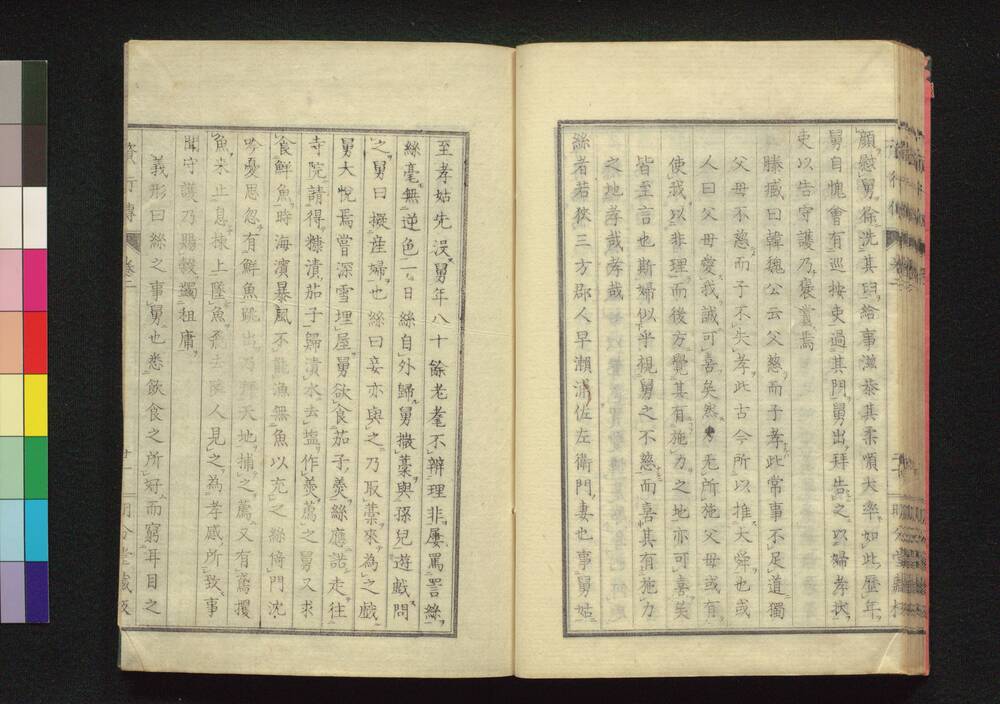 顔慰舅徐洗其臥給事滋恭其柔順大率如此歴年
舅自愧會有巡按吏過其門舅出拜告之以婦孝狀
吏以告守護乃褒賞焉
滕臧曰韓魏公云父慈而子孝此常事不足道獨
父母不慈而子不失孝此古今所以推大舜也或
人曰父母愛我誠可喜矣然无所施父母或有
使我以非理而後方覺其有施力之地亦可喜矣
皆至言也斯婦似乎視舅之不慈而喜其有施力
之地孝哉孝哉
絲者若狹三方郡人早瀬浦佐左衛門妻也事舅姑
至孝姑先沒舅年八十餘老耄不辨理非屢罵詈絲
絲毫無逆色一日絲自外歸舅撒藁與孫兒遊戯問
之舅曰擬産婦也絲曰妾亦與之乃取藁來為之戯
舅大悦焉嘗深雪埋屋舅欲食茄子羹絲應諾走往
寺院請得糠漬茄子歸漬水去塩作羹薦之舅又求
食鮮魚時海濱暴風不能漁無魚以充之絲倚門沈
吟憂思忽有鮮魚跳出乃拜天地捕之薦又有鳶攫
魚來止息棟上墜魚飛去隣人見之為孝感所致事
聞守護乃賜穀蠲租庸
義形曰絲之事舅也悉飲食之所好而窮耳目之
筑行傳 卷二